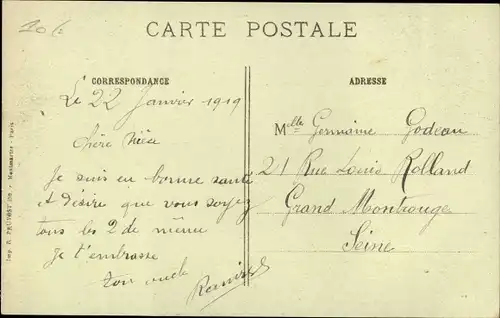 CARTE POSTALE
CORRESPONDANCE
Le 22 Janvier 1919
Chère Nièce
Je suis en bonne santé
et désire que vous soyez
tous les 2 de même
Je t'embrasse
ton oncle
ADRESSE
Mlle Germaine Godeau
21 Rue Louis Rolland
Grand Montrouge
Seine